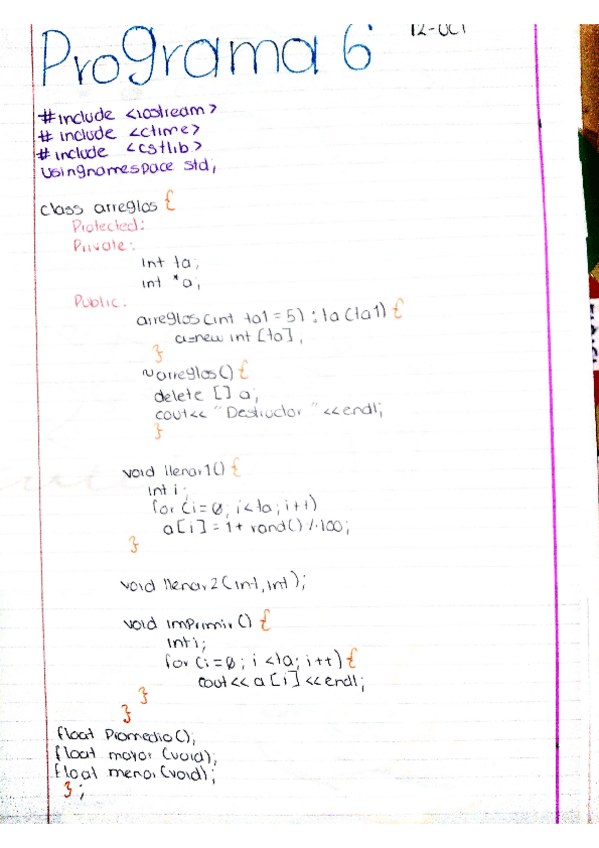 Programa 6
12-oct
#include <iostream>
# include <ctime>
# include <cstlib>
Usingnamespace std;
class arreglos {
Protected:
Private:
int ta;
int *a;
Public:
arreglos(int ta1=5) : ta(ta1) {
a=new int [ta];
}
~arreglos() {
delete [] a;
cout<< "Destructor "<<endl;
}
void llenar1() {
int i;
for (i=0; i<ta; i++)
a[i] = 1+ rand() %100;
}
void llenar2(int,int);
void imprimir() {
int i;
for (i=0; i<ta; i++) {
cout<<a[i]<<endl;
}
}
float Promedio();
float mayor (void);
float menor (void);
};